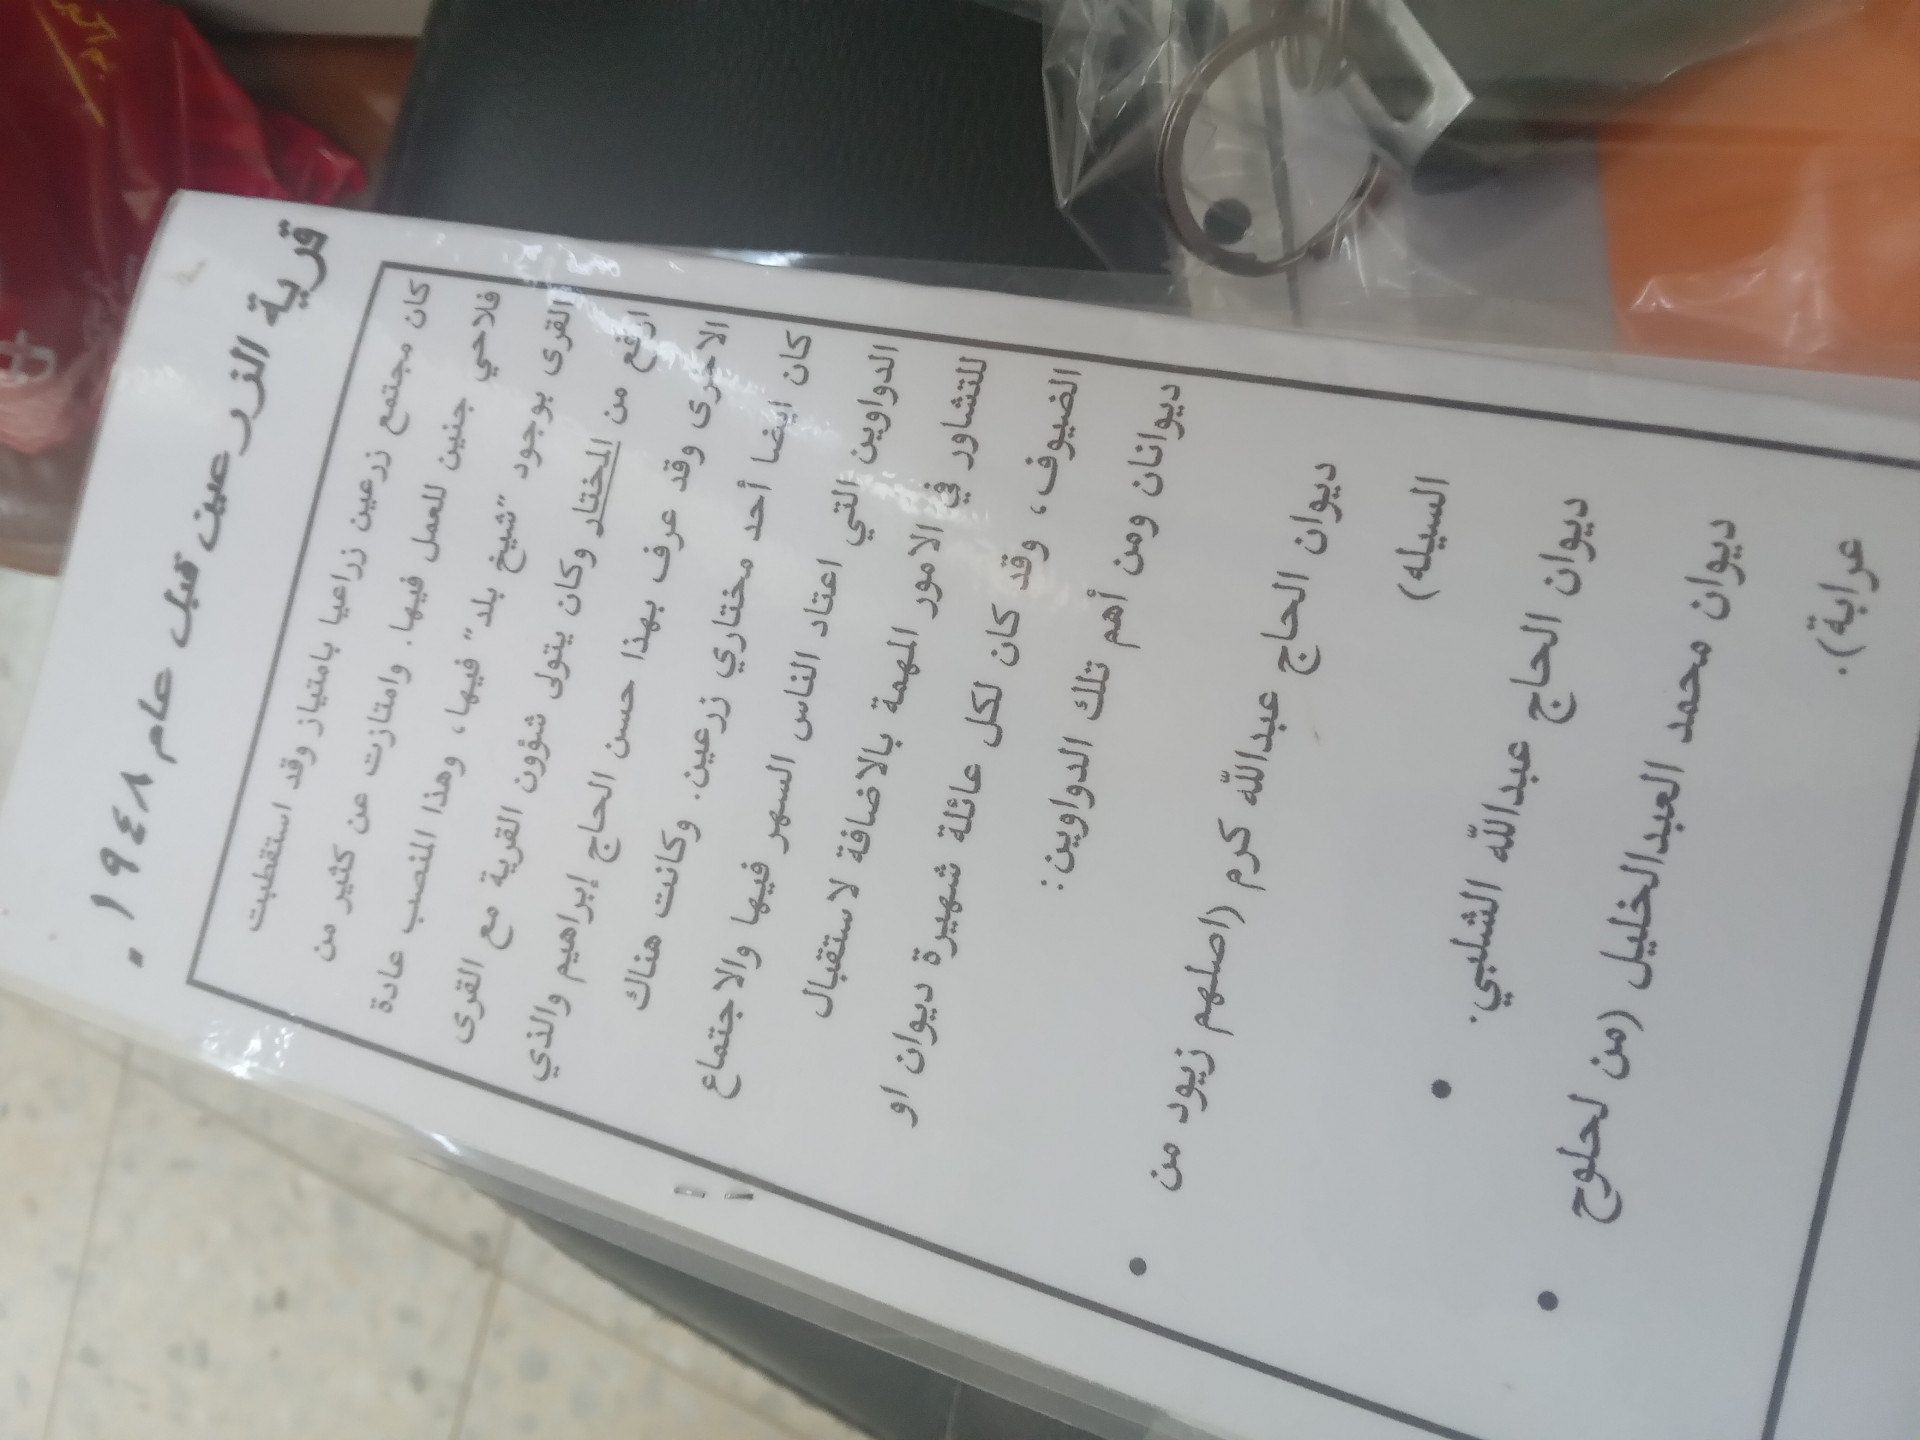 قرية الزرعين قبل عام ١٩٤٨ .
كان مجتمع زرعين زراعيا بامتياز وقد استقطبت
فلاحي جنين للعمل فيها. وامتازت عن كثير من
القرى بوجود "شيخ بلد" فيها، وهذا المنصب عادة
ارفع من المختار وكان يتولى شؤون القرية مع القرى
الاخرى وقد عرف بهذا حسن الحاج إبراهيم والذي
كان ايضا أحد مختاري زرعين. وكانت هناك
الدواوين التي اعتاد الناس السهر فيها والاجتماع
للتشاور في الامور المهمة بالاضافة لاستقبال
الضيوف، وقد كان لكل عائلة شهيرة ديوان او
ديوانان ومن أهم تلك الدواوين:
ديوان الحاج عبدالله كرم (اصلهم زيود من
السيله)
• ديوان الحاج عبدالله الشلبي.
• ديوان محمد العبدالخليل (من لحلوح
عرابة).